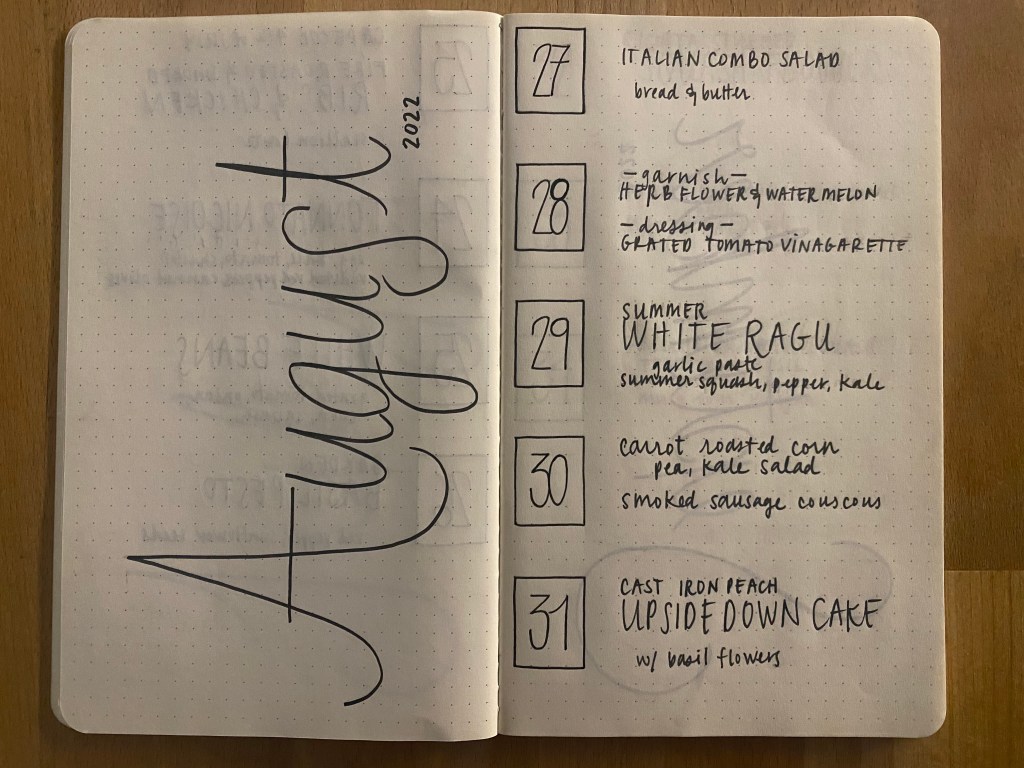 August
2022
27
ITALIAN COMBO SALAD
bread & butter
28
- garnish -
HERB FLOWER & WATERMELON
- dressing -
GRATED TOMATO VINAGARETTE
29
SUMMER
WHITE RAGU
garlic paste
summer squash, pepper, kale
30
carrot roasted corn
pea, kale salad
smoked sausage couscous
31
CAST IRON PEACH
UPSIDE DOWN CAKE
w/ basil flowers